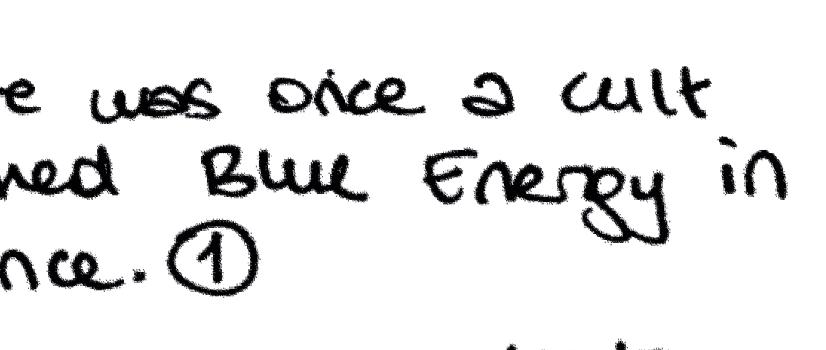 e was once a cult
ned Blue Energy in
nce. ①